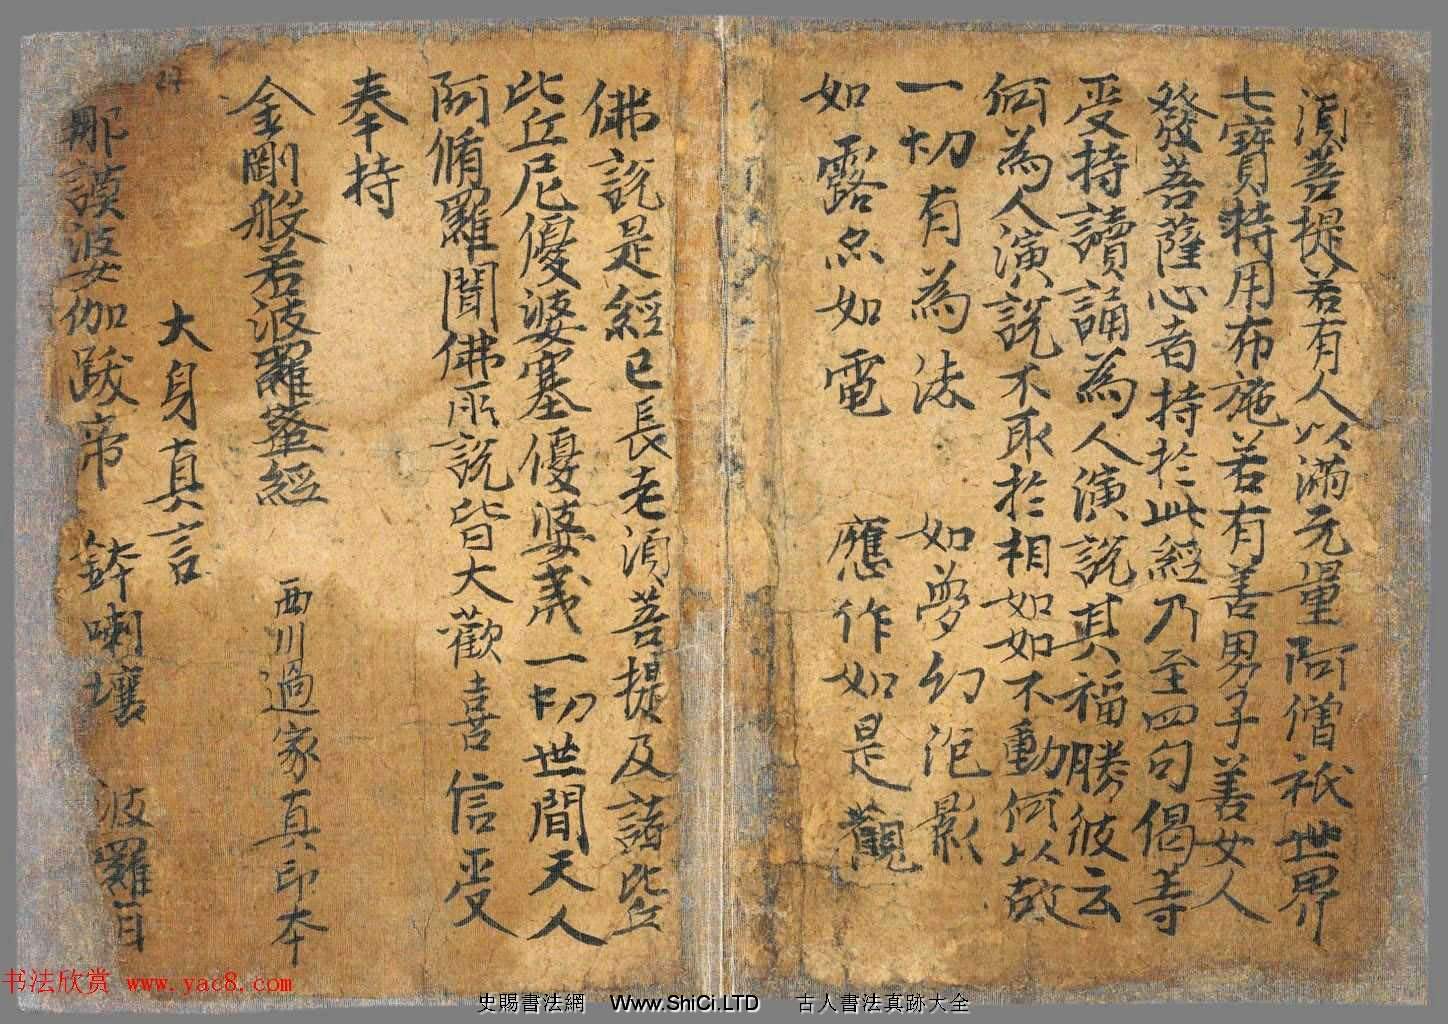 湏菩提若有人以滿无量阿僧祇世界
七寶持用布施若有善男子善女人
發菩薩心者持於此經乃至四句偈等
受持讀誦為人演說其福勝彼云
何為人演說不取於相如如不動何以故
一切有為法 如夢幻泡影
如露亦如電 應作如是觀
佛說是經已長老湏菩提及諸比丘
比丘尼優婆塞優婆夷一切世間天人
阿脩羅聞佛所說皆大歡喜信受
奉持
金剛般若波羅蜜經 西川過家真印本
大身真言
那謨婆伽跋帝 鉢喇壤 波羅
27
书法欣赏 www.yac8.com
史賜書法網 Www.ShiCi.LTD 古人書法真跡大全